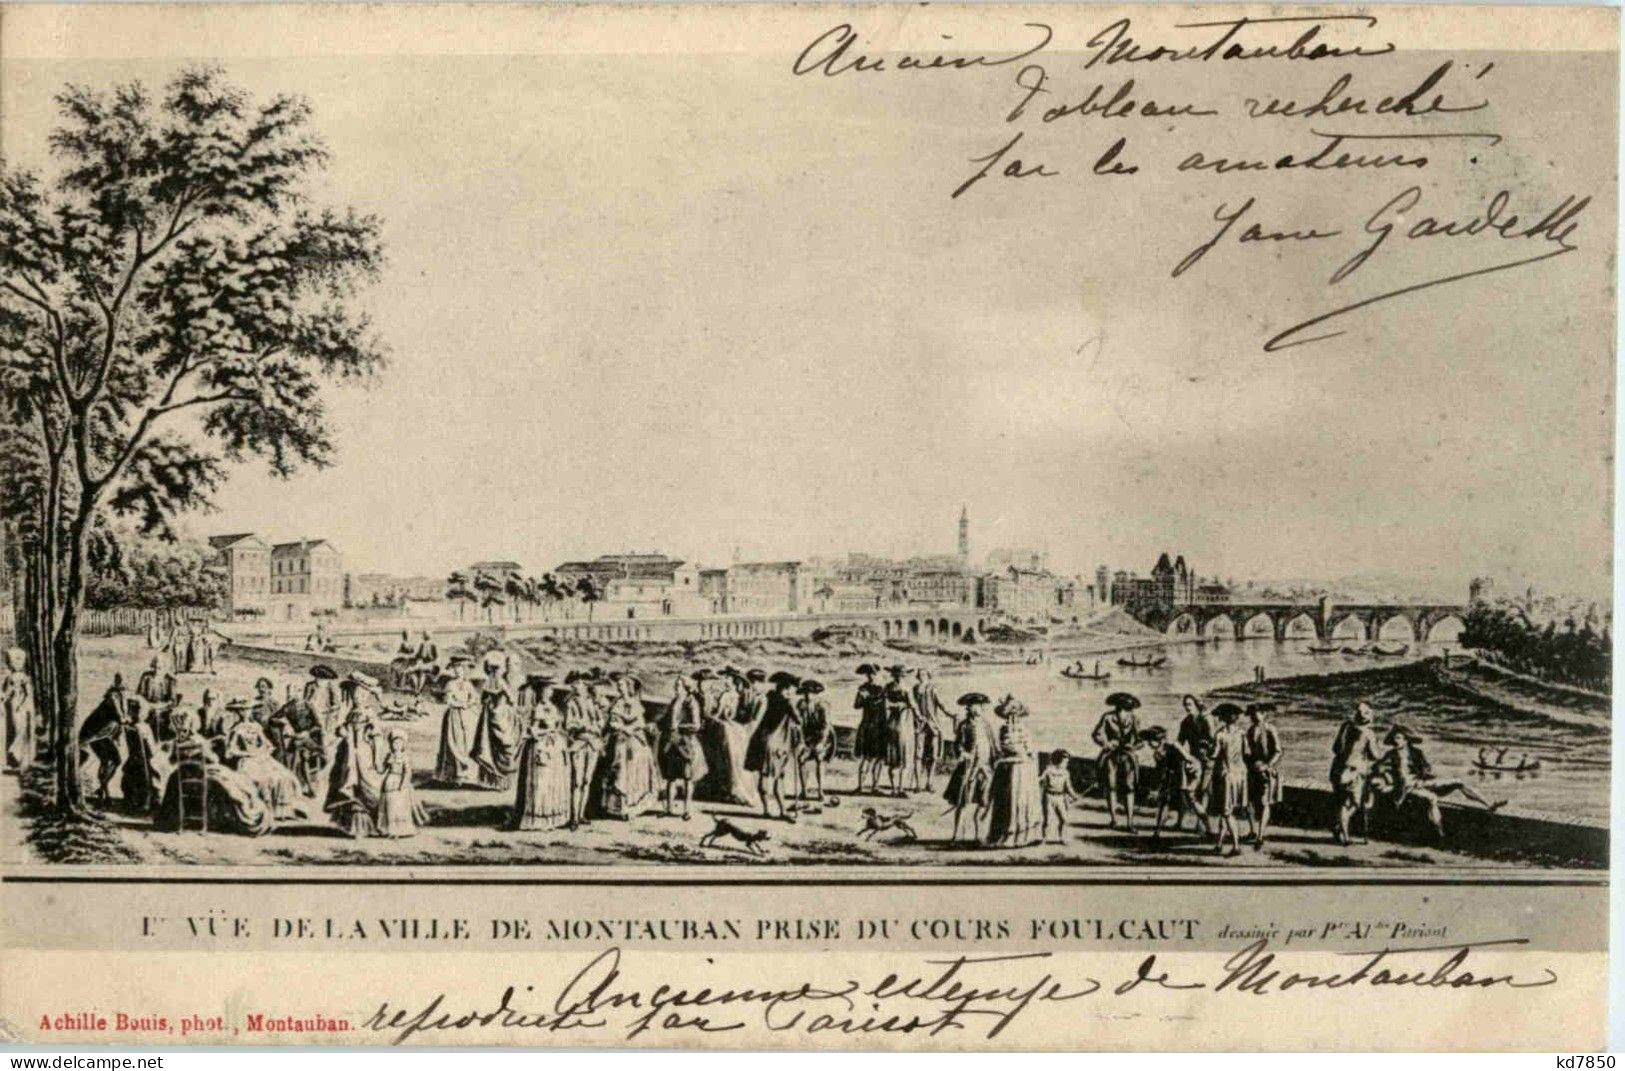 Ancien Montauban
Tableau recherché
par les amateurs.
Jane Gardelle
Iʳᵉ VÜE DE LA VILLE DE MONTAUBAN PRISE DU COURS FOULCAUT dessinée par Pʳᵉ Alᵈʳᵉ Parisot
Ancienne estampe de Montauban
reproduite par Parisot
Achille Bouis, phot., Montauban.
www.delcampe.net
kd7850